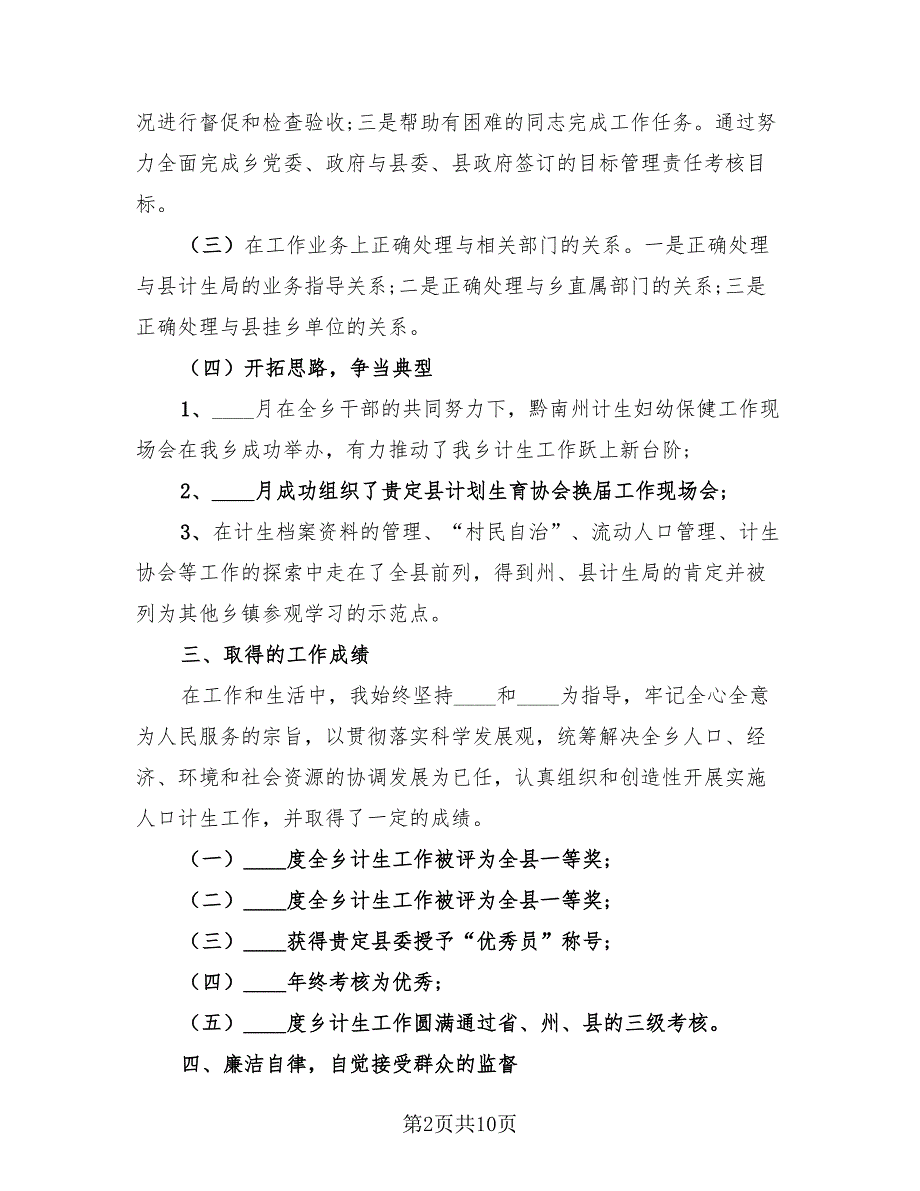 况进行督促和检查验收;三是帮助有困难的同志完成工作任务。通过努
力全面完成乡党委、政府与县委、县政府签订的目标管理责任考核目
标。
（三）在工作业务上正确处理与相关部门的关系。一是正确处理
与县计生局的业务指导关系;二是正确处理与乡直属部门的关系;三是
正确处理与县挂乡单位的关系。
（四）开拓思路，争当典型
1、____月在全乡干部的共同努力下，黔南州计生妇幼保健工作现
场会在我乡成功举办，有力推动了我乡计生工作跃上新台阶;
2、____月成功组织了贵定县计划生育协会换届工作现场会;
3、在计生档案资料的管理、“村民自治”、流动人口管理、计生
协会等工作的探索中走在了全县前列，得到州、县计生局的肯定并被
列为其他乡镇参观学习的示范点。
三、取得的工作成绩
在工作和生活中，我始终坚持____和____为指导，牢记全心全意
为人民服务的宗旨，以贯彻落实科学发展观，统筹解决全乡人口、经
济、环境和社会资源的协调发展为已任，认真组织和创造性开展实施
人口计生工作，并取得了一定的成绩。
（一）____度全乡计生工作被评为全县一等奖;
（二）____度全乡计生工作被评为全县一等奖;
（三）____获得贵定县委授予“优秀员”称号;
（四）____年终考核为优秀;
（五）____度乡计生工作圆满通过省、州、县的三级考核。
四、廉洁自律，自觉接受群众的监督
第2页共10页